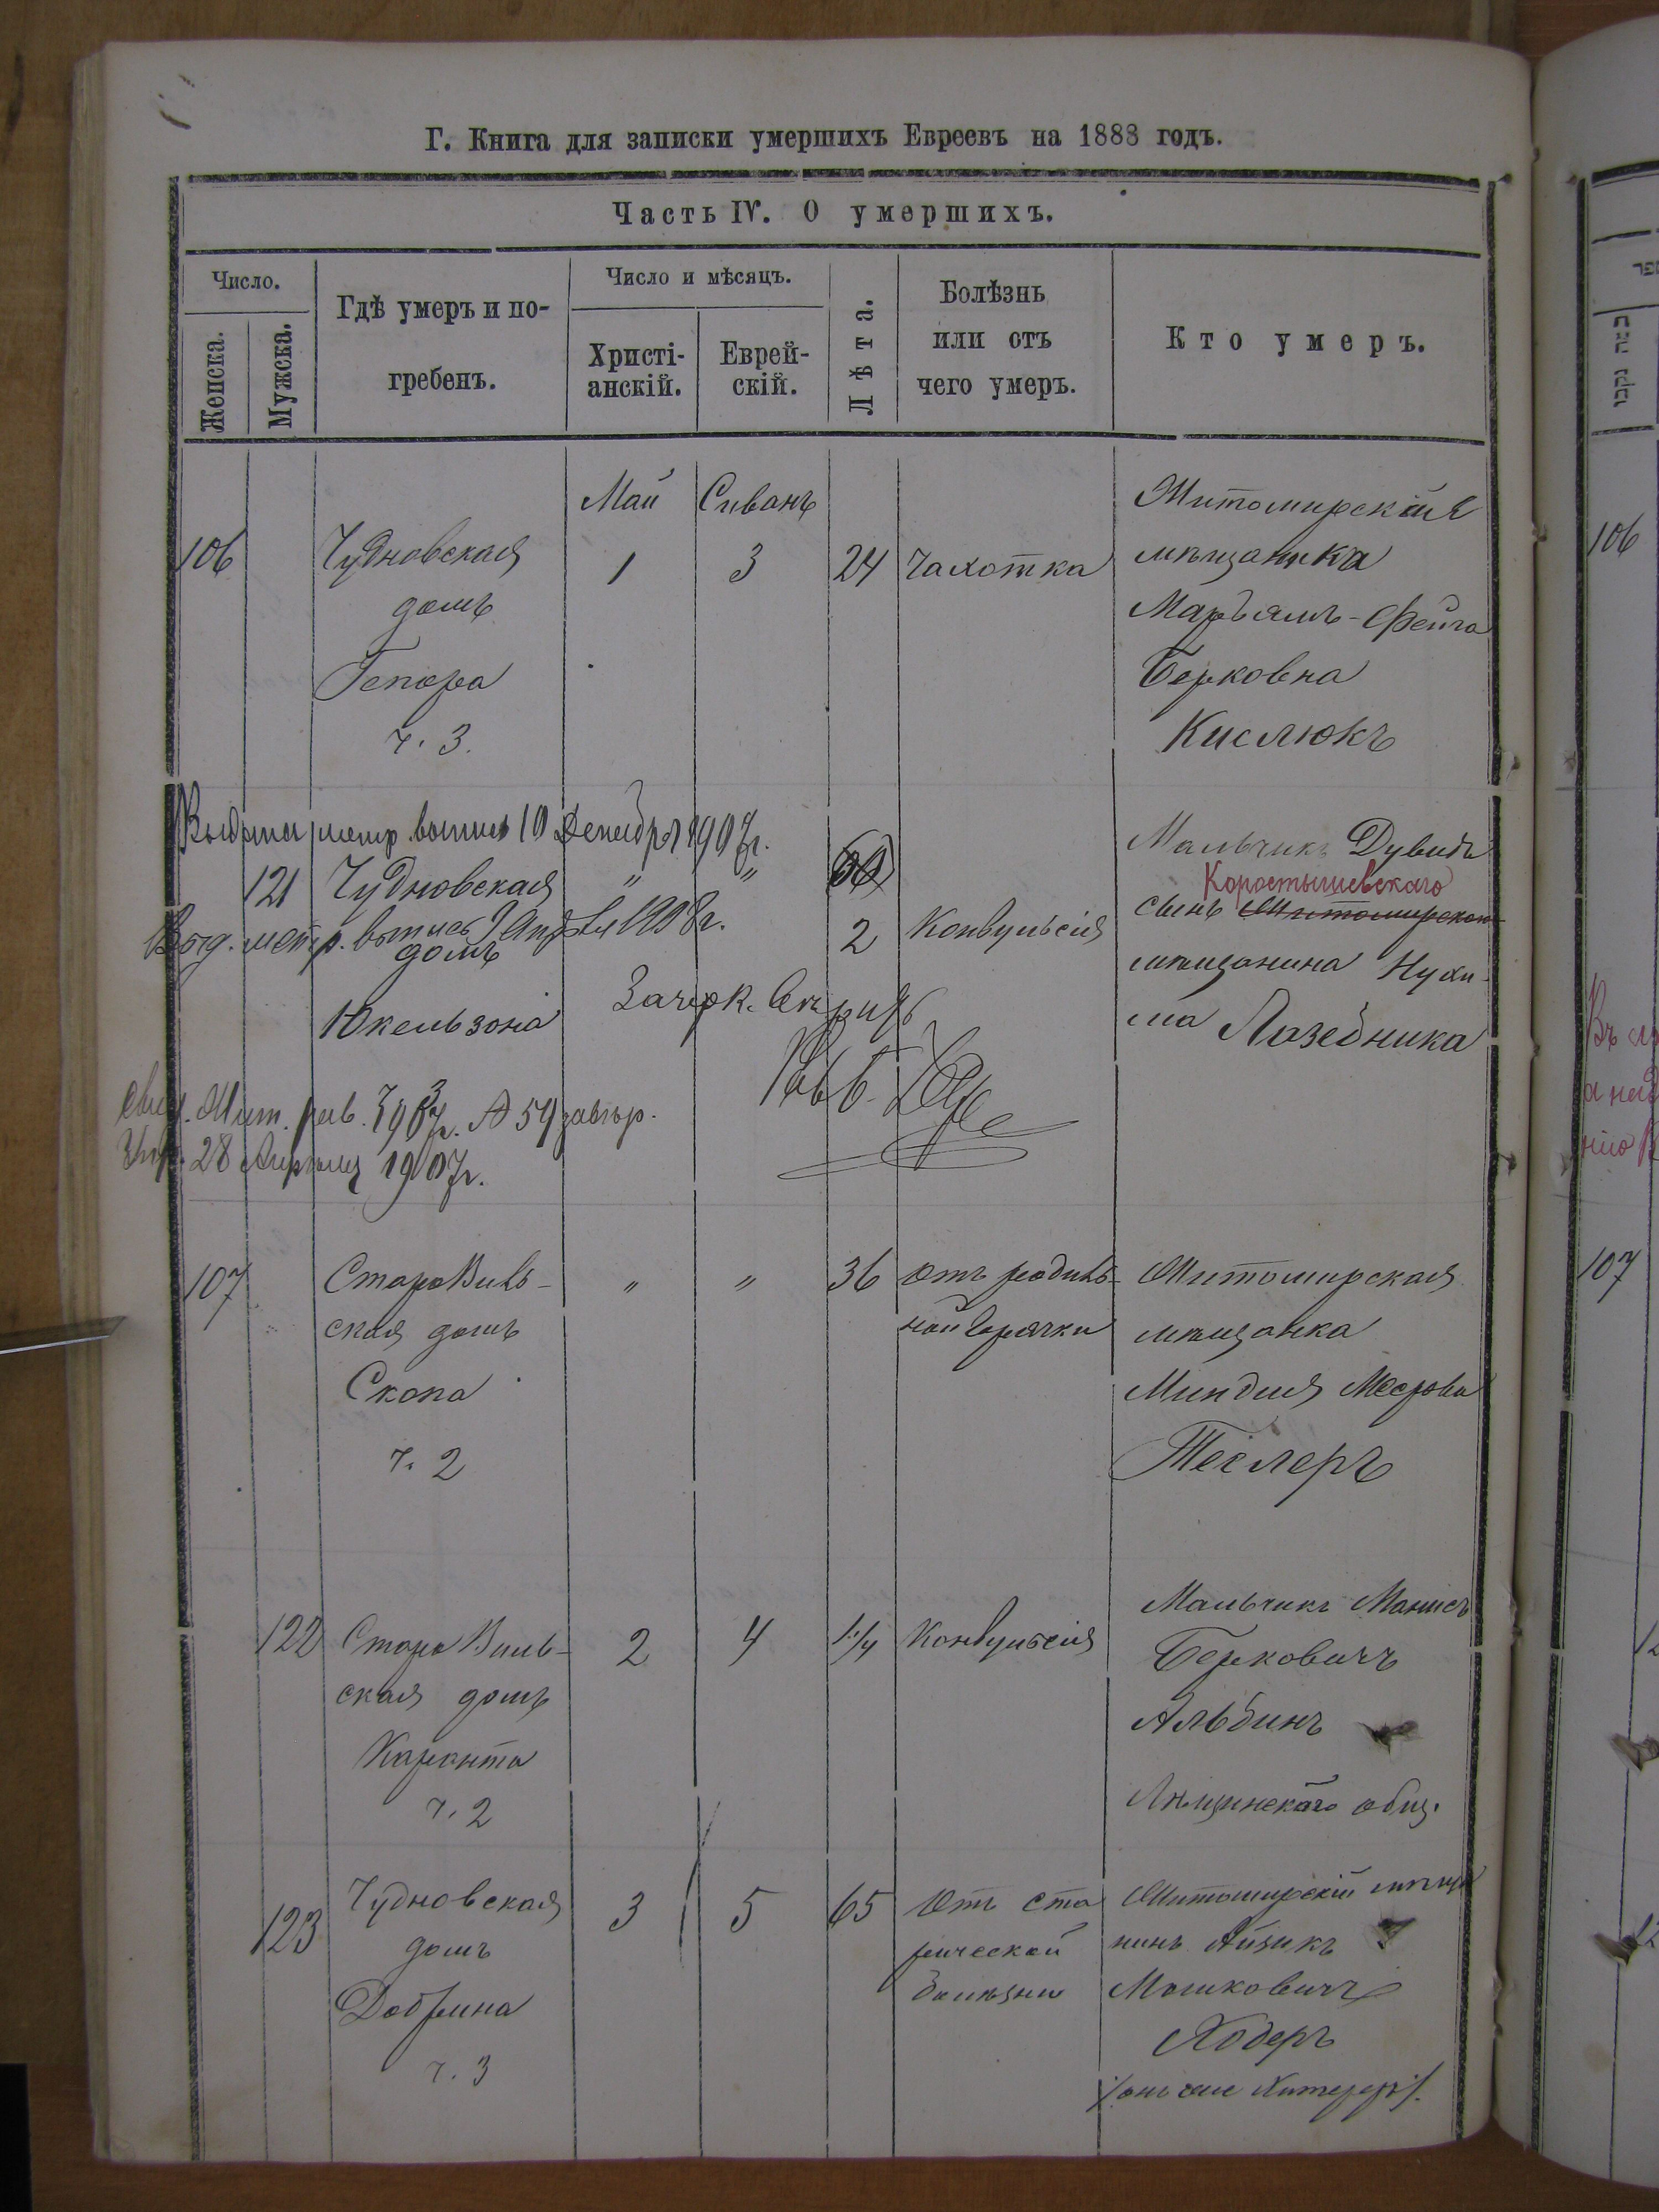 Г. Книга для записки умершихъ Евреевъ на 1888 годъ.
Часть IV. О умершихъ.
Число.
Женска.
Мужска.
Гдѣ умеръ и по-
гребенъ.
Число и мѣсяцъ.
Христі-
анскій.
Еврей-
скій.
Лѣта.
Болѣзнь
или отъ
чего умеръ.
Кто умеръ.
106
Чудновская
домъ
ч. 3.
Май
1
Сиванъ
3
24
Чахотка
Житомирская
мѣщанка
Марьямъ-Фейга
Берковна
Кислюкъ
Выдана метр. выпись 10 Декабря 1907г.
121
Чудновская
"
"
Выд. метр. выпись 1908г.
домъ
Юкельзона
2
Конвульсія
Мальчикъ Дувидъ
Коростышевскаго
сынъ Житомирскаго
мѣщанина Нухи-
ма Лазебника
Зачерк.
Жит. рав. 1907г. № 59
28 Апрѣля 1907г.
107
СтароВиль-
ская домъ
Скопа
ч. 2
"
"
36
Отъ родиль-
ной горячки
Житомирская
мѣщанка
Миндля Меерова
Теслеръ
122
СтароВиль-
ская домъ
Каранта
ч. 2
2
4
1 1/4
Конвульсія
Мальчикъ
Берковичъ
Альбинъ
Лѣщинскаго общ.
123
Чудновская
домъ
Добрина
ч. 3
3
5
65
Отъ ста
рческой
болѣзни
Житомирскій мѣща
нинъ Айзикъ
Мошковичъ
Ходеръ
106
107